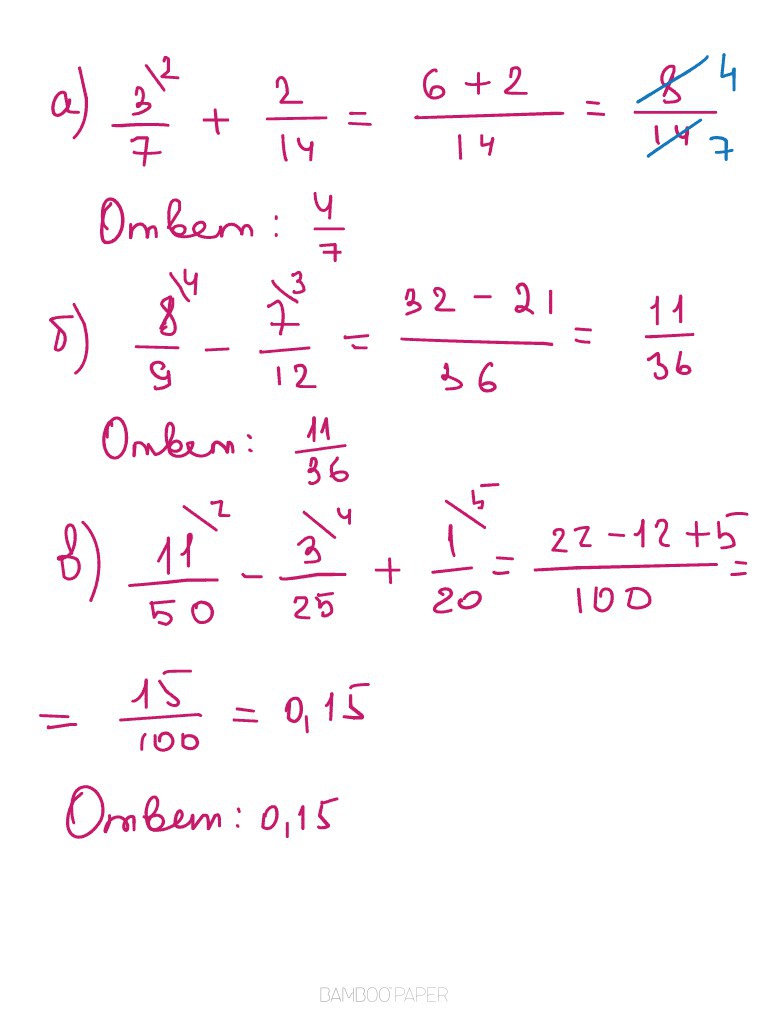 а) 3\2/7 + 2/14 = (6 + 2)/14 = 8/14 4/7
Ответ: 4/7
б) 8\4/9 - 7\3/12 = (32 - 21)/36 = 11/36
Ответ: 11/36
в) 11\2/50 - 3\4/25 + 1\5/20 = (22 - 12 + 5)/100 =
= 15/100 = 0,15
Ответ: 0,15
BAMBOO PAPER